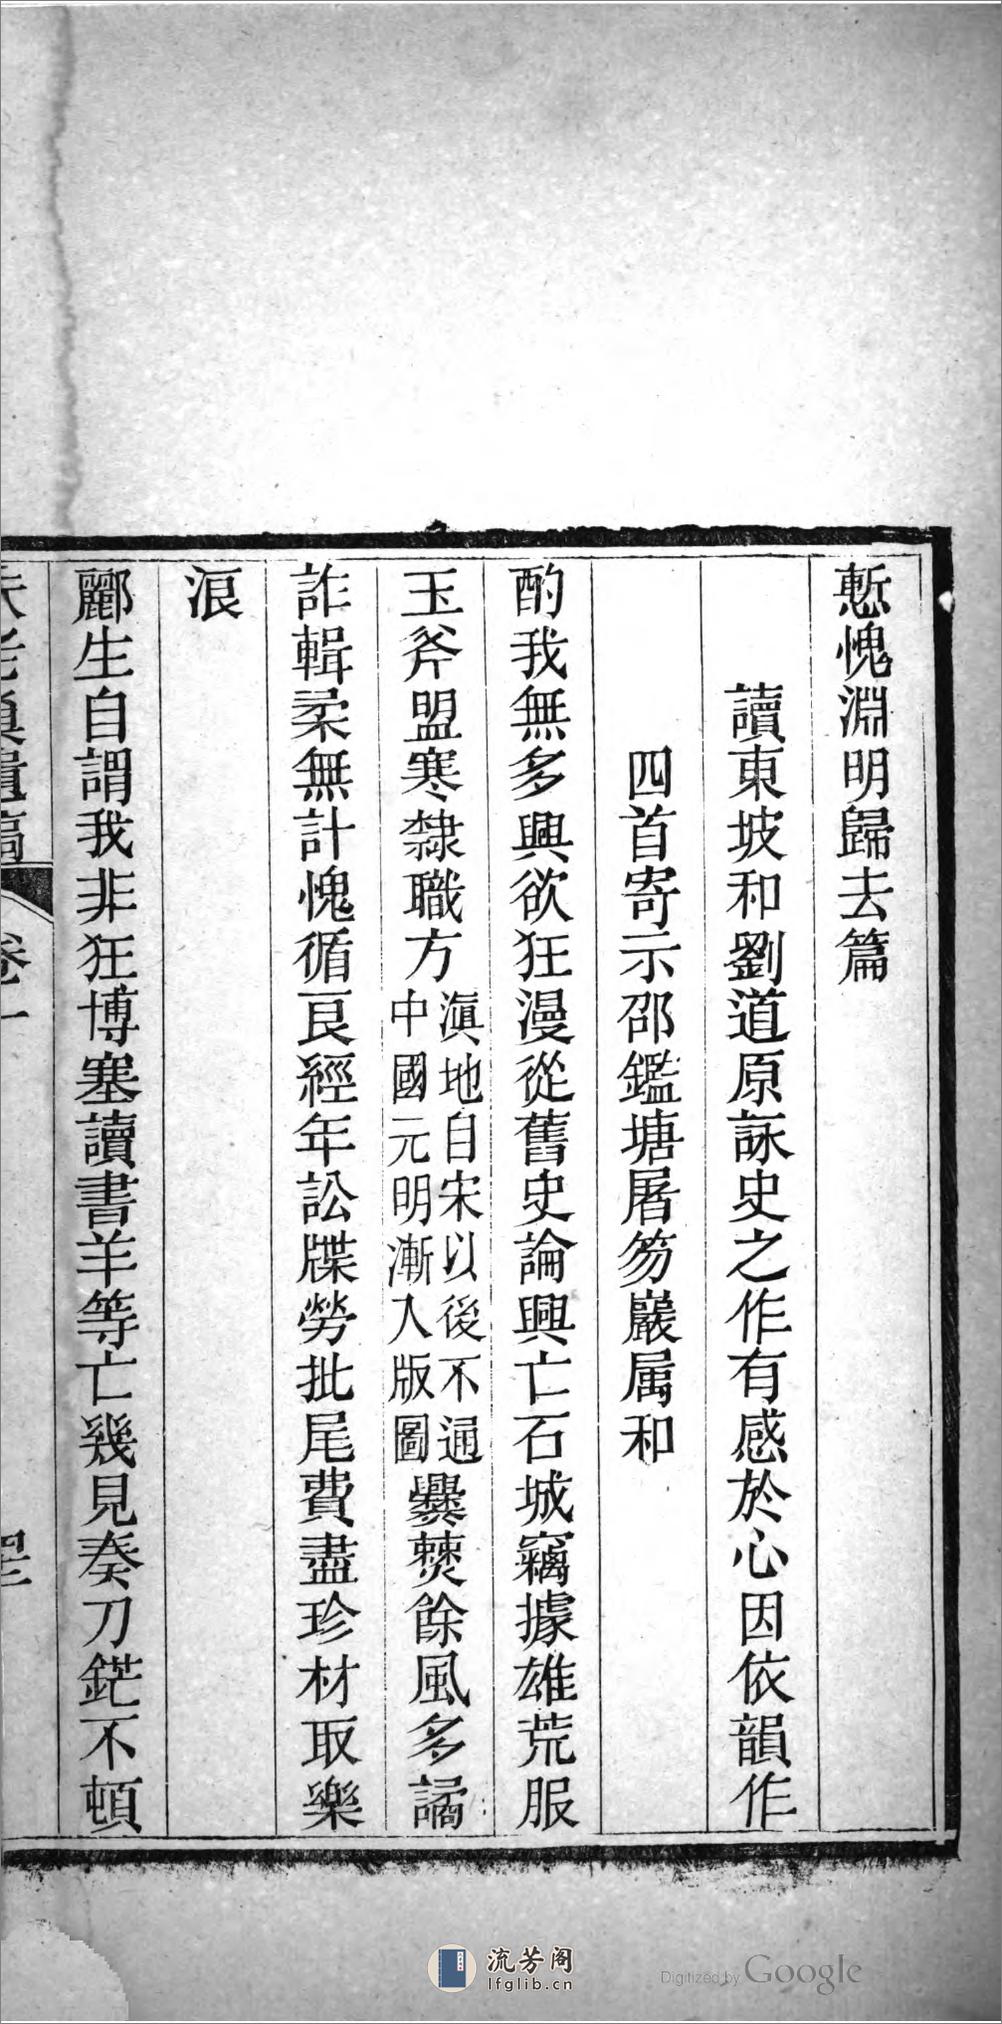 慙愧淵明歸去篇
讀東坡和劉道原詠史之作有感於心因依韻作
四首寄示邵鑑塘屠笏巖属和
酌我無多興欲狂漫從舊史論興亡石城竊據雄荒服
玉斧盟寒隸職方滇地自宋以後不通中國元明漸入版圖爨僰餘風多譎
詐輯柔無計愧循良經年訟牒勞批尾費盡珍材取樂
浪
酈生自謂我非狂博塞讀書羊等亡幾見奏刀鋩不頓
卷一
流芳阁
lfglib.cn
Digitized by Google